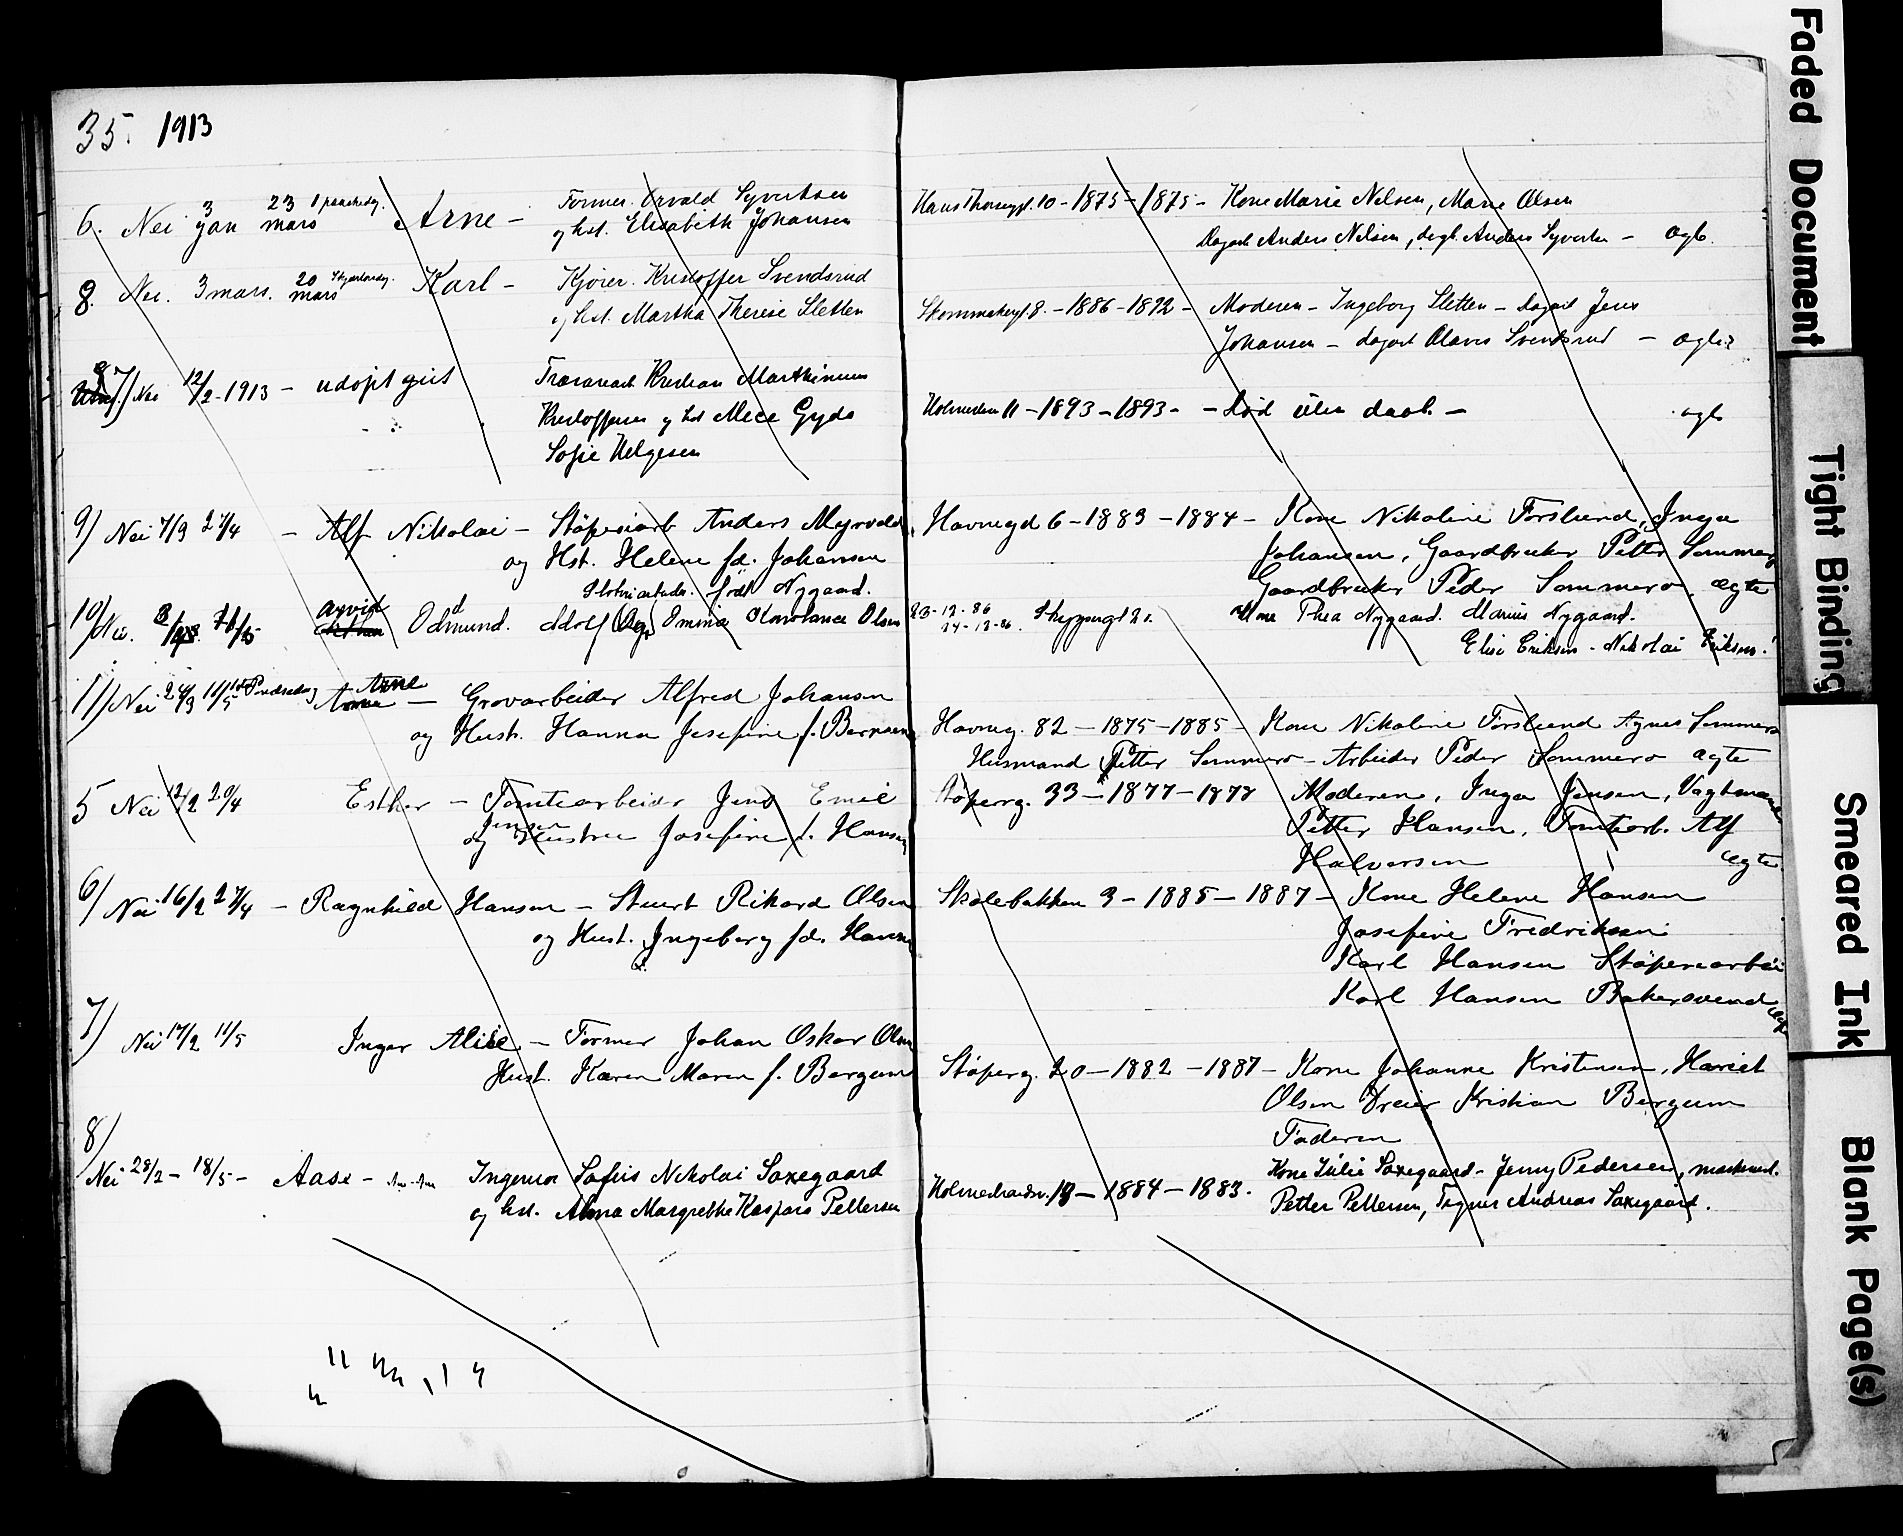 35. 1913
6. Nei 3 jan 23 mars 1 paaskedag. Arne - Former. Orvald Syvertsen
og hst. Elisabeth Johansen
Hans Thornegt. 10 - 1875 - 1875 - Kone Marie Nilsen, Marie Olsen
Dagarb Anders Nilsen, degl. Anders Syvertsen - ægte.
8. Nei. 3 mars. 20 mars Skjærtorsdag. Karl - Kjører. Kristoffer Svendsrud
og hst. Martha Therese Sletten
Skommakergt. 8. - 1886 - 1892 - Moderen - Ingeborg Sletten - Dagarb Jens
Johansen - dagarb Olaves Svendsrud - ægte
7) Nei 12/2 - 1913 - udøpt gut Kristian Marthinius
Kristoffersen og hst Alice Gyda
Sofie Helgesen
Holmedan 11 - 1893 - 1893 - - død uten daab - ægte
9) Nei 7/3 27/4 - Alf Nikolai - Støperiarb Anders Myrvold
og Hst. Helene fd. Johansen
Havnegd 6 - 1883 - 1884 - Kone Nikoline Forslund, Inga
Johansen, Gaardbruker Petter Sommero
Gaardbruker Peder Sommero. ægte
født Nygaard.
10) Nei. Arvid Odmund. Adolf Ominia Konstance Olsen
23-12-86
24-12-86
Kone Thea Nygaard. Marius Nygaard.
Elise Eriksen - Nikolai Eriksen.
11) Nei 24/3 11/5 1st Pindsedag Arne Arne - Grovarbeider Alfred Johansen
og Hust. Hanna Josefine f. Berntsen
Havneg. 82 - 1875 - 1885 - Kone Nikoline Forslund Agnes Sommero
Husmand Petter Sommero - Arbeider Peder Sommero ægte
5 Nei 12/2 20/4 Esther - Tomtearbeider Jens Emil
Jensen
og Hustru Josefine f. Hansen
Støperg. 33 - 1877 - 1877 Moderen, Inga Jensen, Vagtmand
Petter Hansen, Tomtearb. Alf
Halvorsen ægte
6) Nei 16/2 27/4 - Ragnhild Hansen - Stuert Rikard Olsen
og Hust. Ingeborg fd. Hansen
Skolebakken 3 - 1885 - 1887 - Kone Helene Hansen
Josefine Fredriksen
Karl Hansen Støperiarbei
Karl Hansen Bakersvend
7) Nei 17/2 11/5 Inger Alise - Former Johan Oskar Olsen
Hust. Karen Maren f. Bergum
Støperg. 20 - 1882 - 1887 - Kone Johanne Kristensen, Hariet
Olsen Dreier Kristian Bergum
Faderen
8)
Nei 28/2 - 18/5 - Aase - Ingemor Sofus Nikolai Saxegaard
og hst. Alma Margrethe Kaspara Pettersen
18 - 1884 - 1883. Kone Julie Saxegaard - Jenny Pedersen, maskinist.
Petter Pettersen, Signer Andreas Saxegaard.
Faded Document
Tight Binding
Smeared Ink
Blank Page(s)